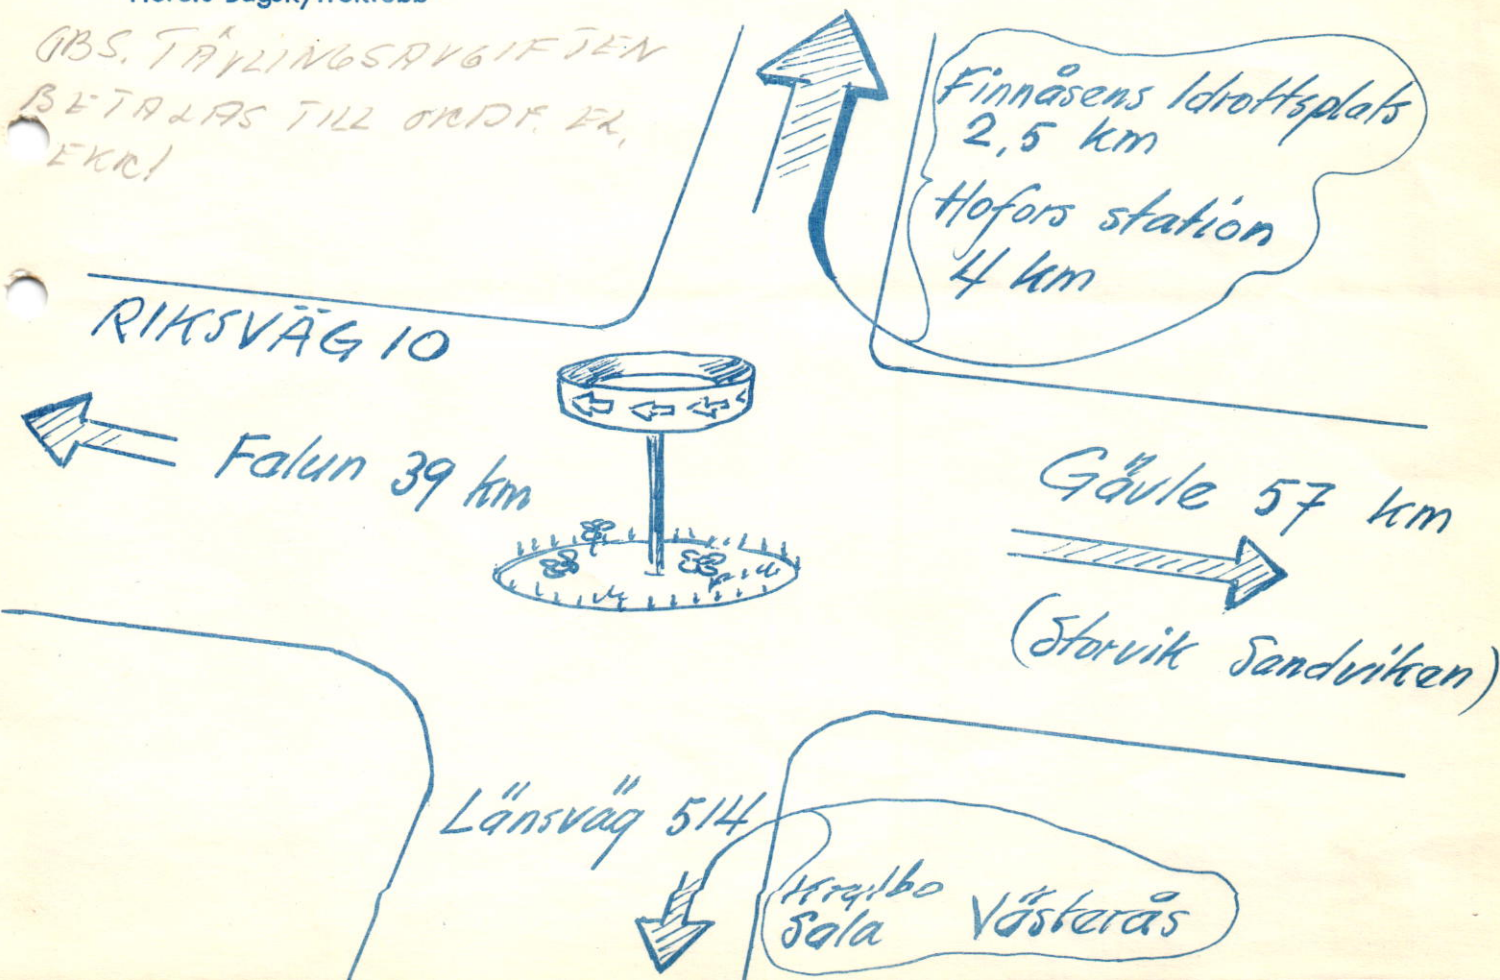 OBS. TÄVLINGSAVGIFTEN
BETALAS TILL
Finnåsens Idrottsplats
2,5 km
Hofors station
4 km
RIKSVÄG 10
Falun 39 km
Gävle 57 km
(Storvik Sandviken)
Länsväg 514
Krylbo
Sala Västerås